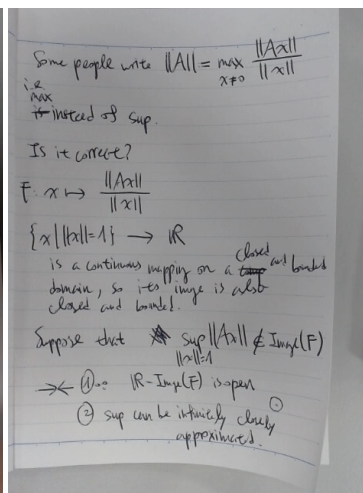 Some people write ||A|| = max ||Ax|| / ||x||
x≠0
i.e.
max
instead of sup.
Is it correct?
F: x ↦ ||Ax|| / ||x||
{x | ||x||=1} → ℝ
is a continuous mapping on a closed and bounded
domain, so its image is also
closed and bounded.
Suppose that sup ||Ax|| ∉ Image(F)
||x||=1
→← ① ∵ ℝ - Image(F) is open
② sup can be infinitely closely
approximated.